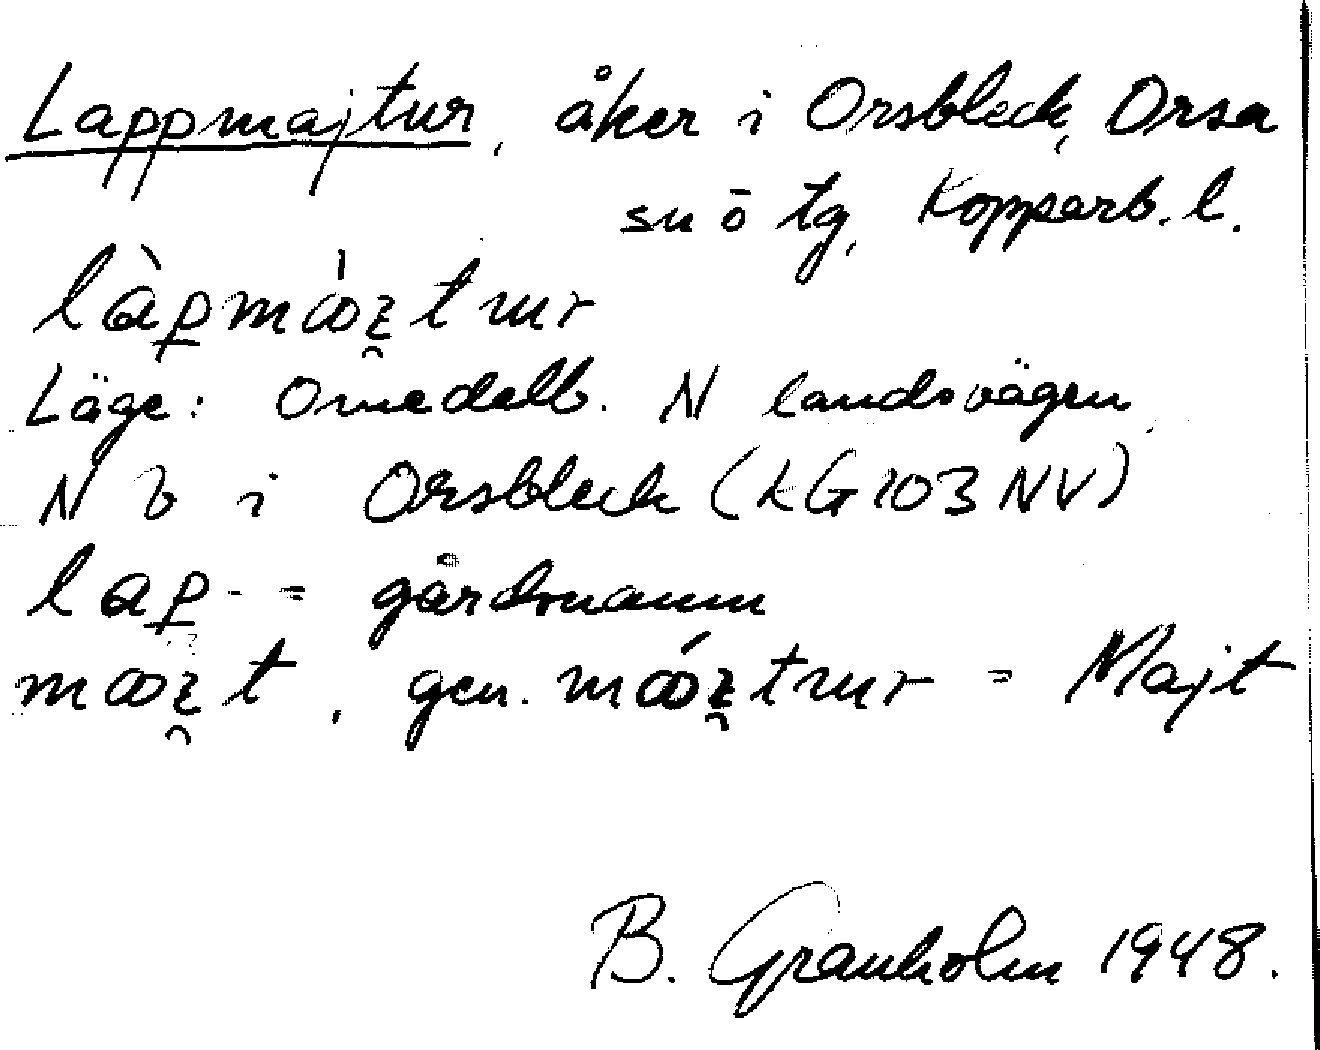 Lappmajtur, åker i Orsbleck, Orsa
sn ö tg, Kopparb. l.
Läge: Omedelb. N landsvägen
N b i Orsbleck (KG 103 NV)
lap- = gårdsnamn
gen. = Majt
B. Granholm 1948.